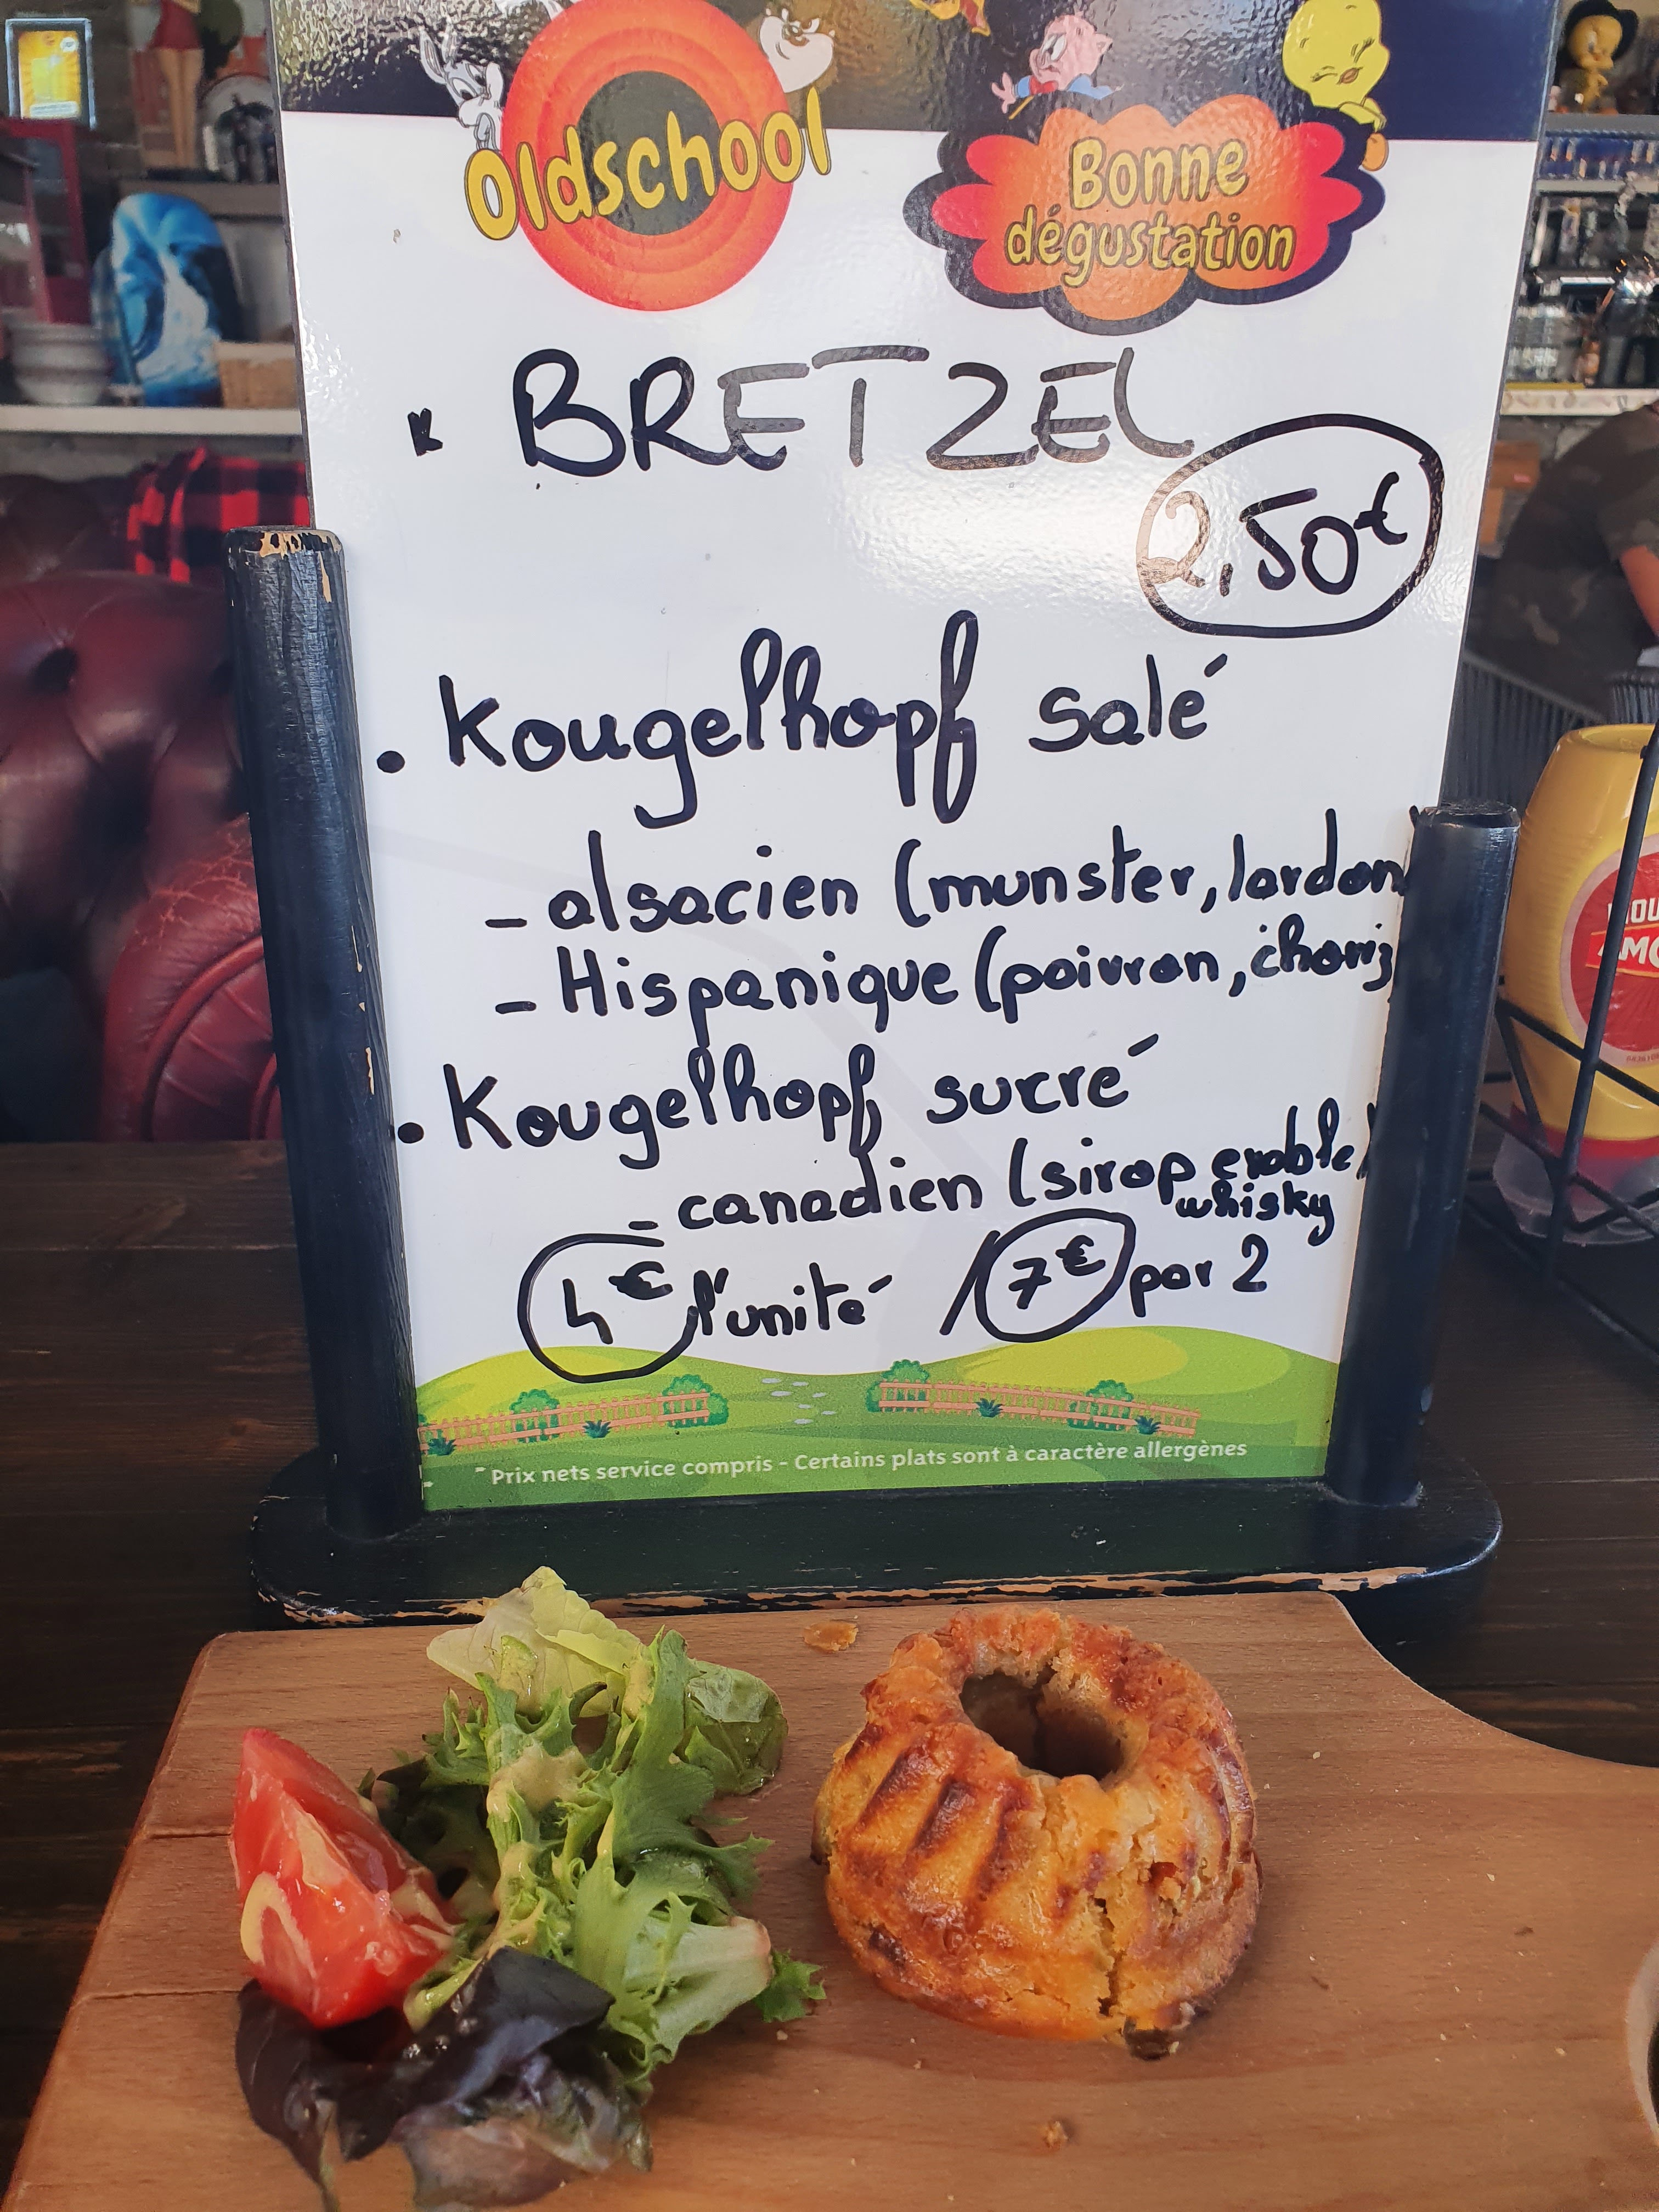 Oldschool
Bonne
dégustation
BRETZEL
2,50€
• Kougelhopf salé
- alsacien (munster, lardon
- Hispanique (poivron, choriz
• Kougelhopf sucré
- canadien (sirop erable)
whisky
4€ l'unité / 7€ par 2
* Prix nets service compris - Certains plats sont à caractère allergènes